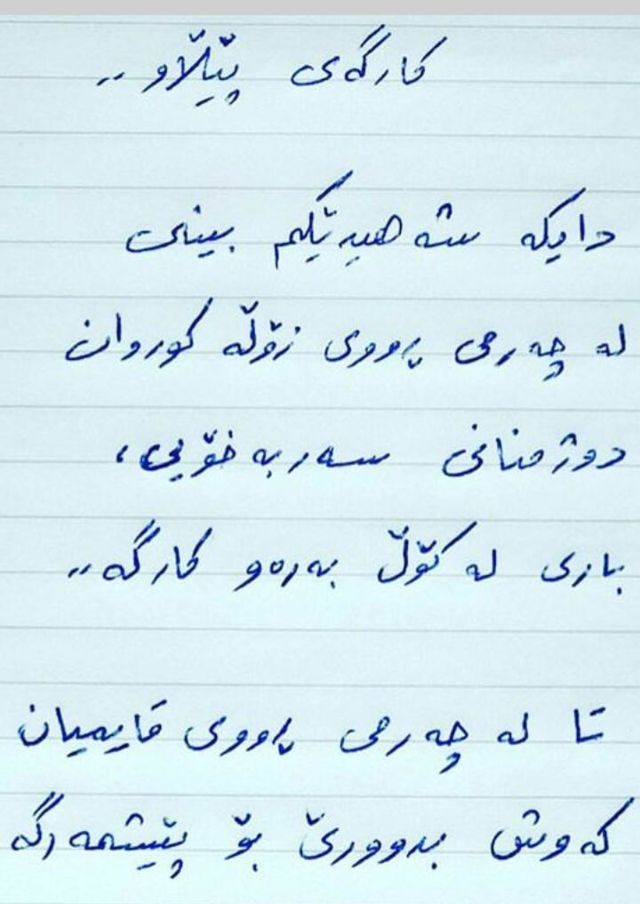 کارگەی پێڵاو ..
دایکە شەهیدێکم بینی
لە چەرمی ڕووی زۆڵە کوردان
دوژمنانی سەربەخۆیی،
باری لە کۆڵ بەرەو کارگە ..
تا لە چەرمی ڕووی قایمیان
کەوش بدوورێ بۆ پێشمەرگە